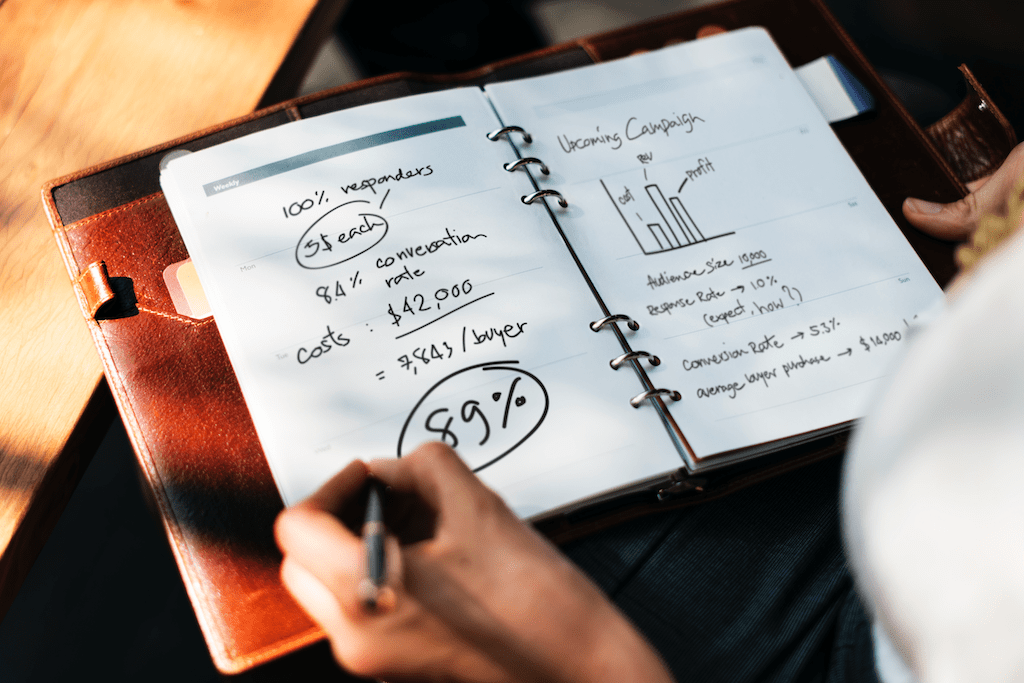 Weekly
100% responders
5$ each
Mon
8.4% conversation
rate
costs : $42,000
Tue
= 7,843 / buyer
89%
Upcoming Campaign
cost
REV
Profit
Audience Size 10,000
Response Rate → 10%
(expect, how?)
Conversion Rate → 5.3%
average buyer purchase → $14,000